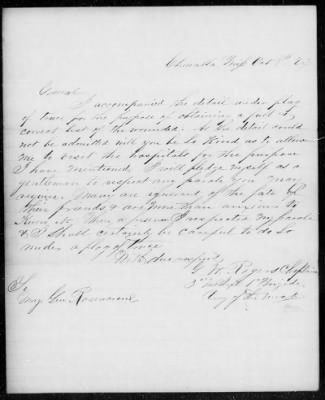 Chewalla Miss Oct 8th 62
General
I accompanied the detail under flag
of truce for the purpose of obtaining a full &
correct list of the wounded. As the detail could
not be admitted will you be so kind as to allow
me to visit the hospitals for the purpose
I have mentioned. I will pledge myself as a
gentleman to respect any parole you may
require. Many are ignorant of the fate of
their friends, & are more than anxious to
know it. Then a prisoner I respected my parole
& I shall certainly be careful to do so
under a flag of truce
Very respfly
G. W. Rogers Chaplain
Brigade
Army of the West
To
Maj Gen Rosecrans